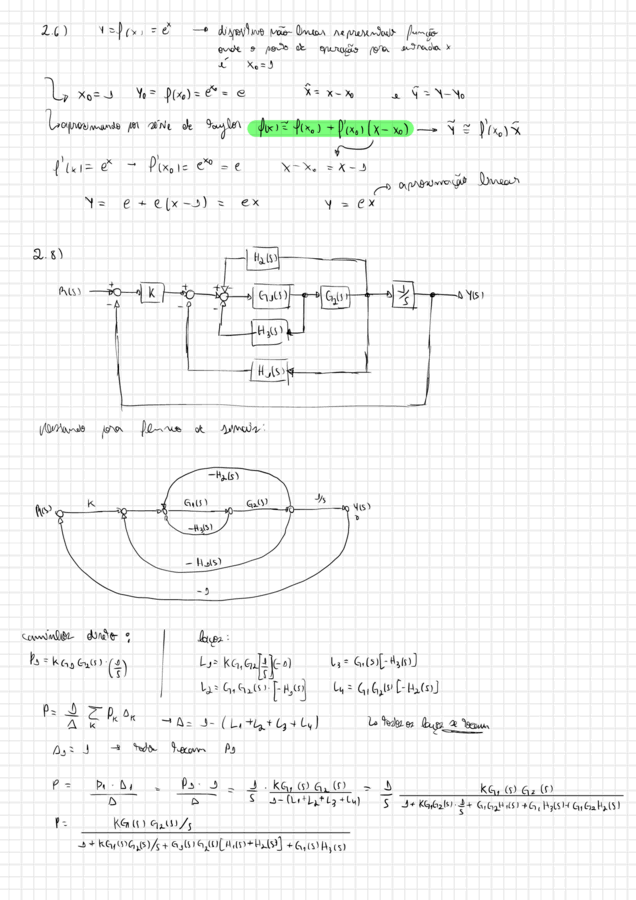 2.6) y = f(x) = e^x → dispositivo não linear representado função
onde o ponto de operação para entrada x
é x₀ = 1
x₀ = 1 y₀ = f(x₀) = e^x₀ = e x̃ = x - x₀ e ỹ = y - y₀
aproximando por série de taylor f(x) ≅ f(x₀) + f'(x₀)(x - x₀) → ỹ ≅ f'(x₀) x̃
f'(x) = e^x → f'(x₀) = e^x₀ = e x - x₀ = x - 1
aproximação linear
y = e + e(x-1) = ex y = ex
2.8)
H₂(s)
R(s) + - K + - + - - G₁(s) G₂(s) 1/s Y(s)
H₃(s)
H₁(s)
para fluxo de sinais:
-H₂(s)
R(s) K G₁(s) G₂(s) 1/s Y(s)
-H₃(s)
-H₁(s)
-1
caminhos direto: laços:
P₁ = KG₁G₂(s)·(1/s) L₁ = KG₁G₂[1/s](-1) L₃ = G₁(s)[-H₃(s)]
L₂ = G₁G₂(s)·[-H₁(s)] L₄ = G₁G₂(s)[-H₂(s)]
P = 1/Δ Σ_K P_K Δ_K → Δ = 1 - (L₁+L₂+L₃+L₄) ↳ todos os laços se tocam
Δ₁ = 1 → tocam P₁
P = P₁·Δ₁/Δ = P₁·1/Δ = 1/s · KG₁(s)G₂(s)/1-(L₁+L₂+L₃+L₄) = 1/s KG₁(s)G₂(s)/1+KG₁G₂(s)·1/s+G₁G₂H₁(s)+G₁H₃(s)+G₁G₂H₂(s)
P = KG₁(s)G₂(s)/s / 1+KG₁(s)G₂(s)/s+G₁(s)G₂(s)[H₁(s)+H₂(s)]+G₁(s)H₃(s)